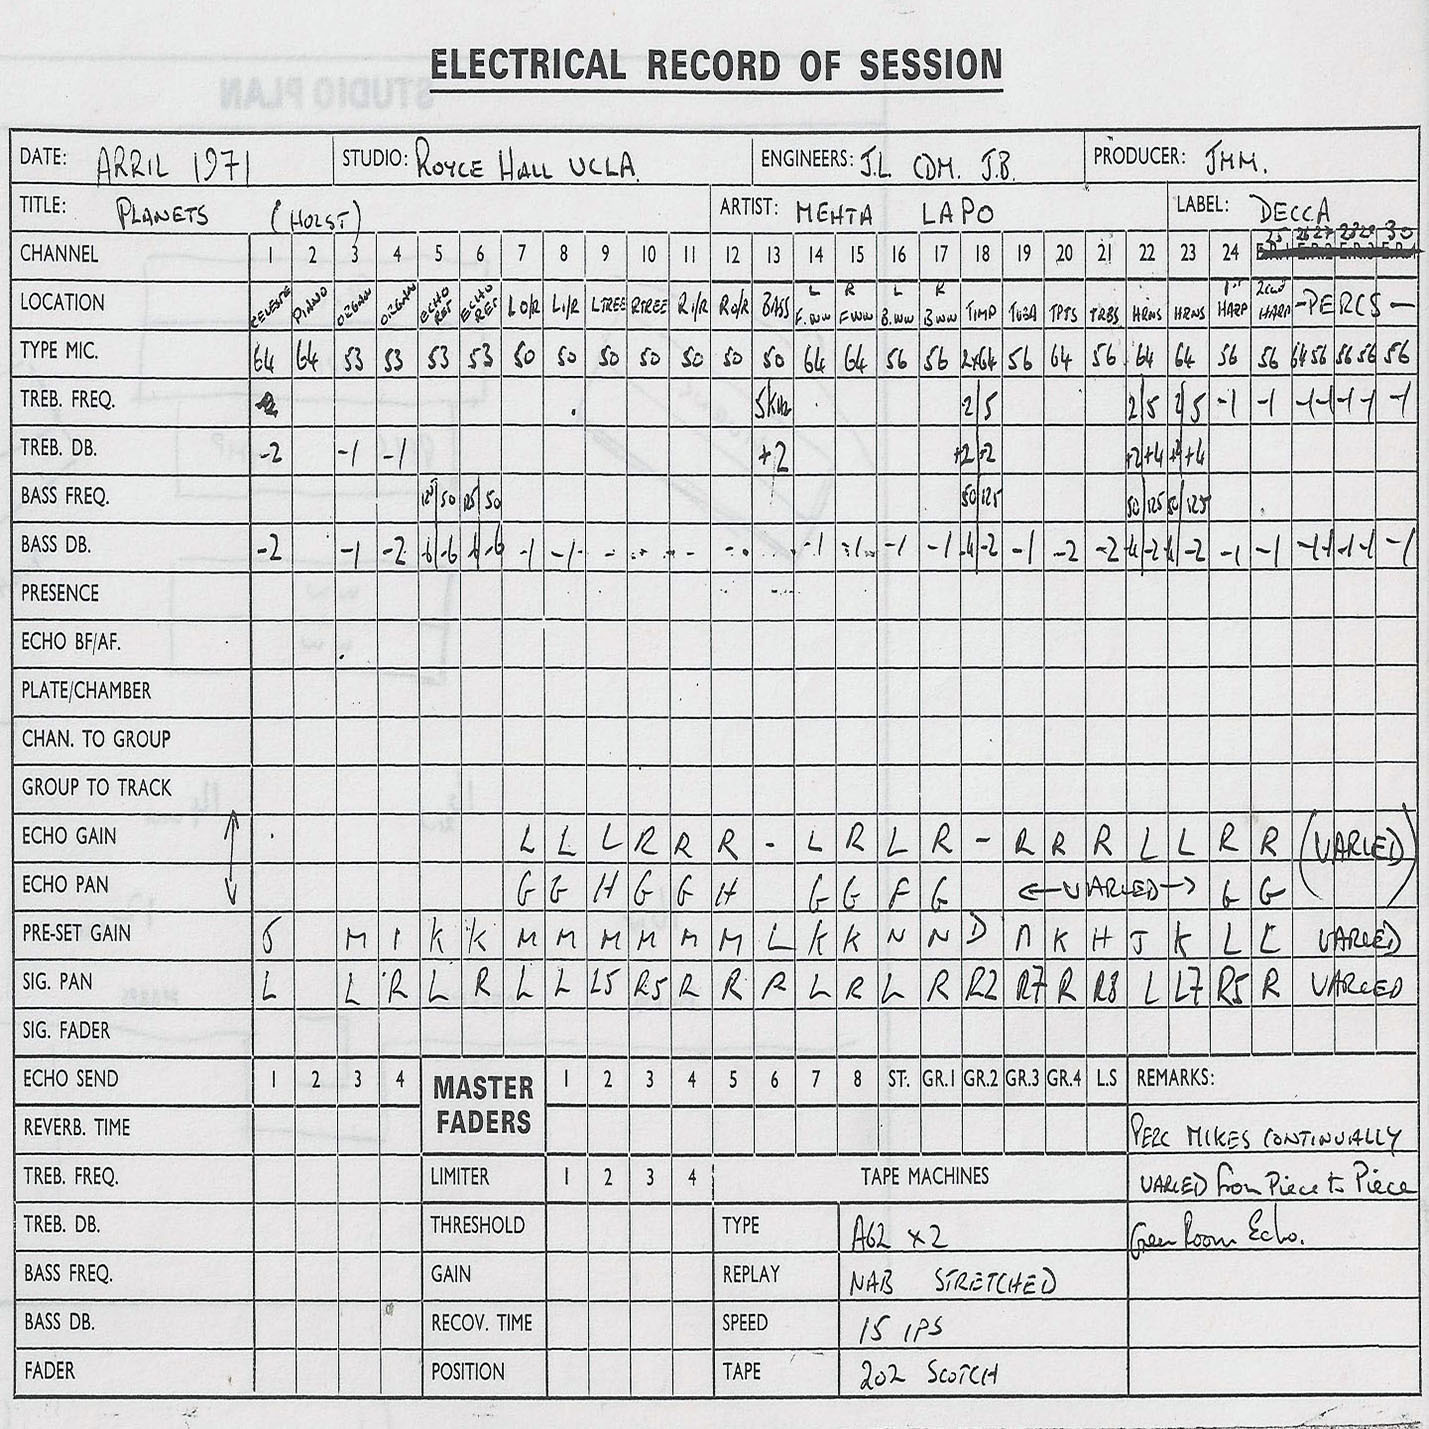 ELECTRICAL RECORD OF SESSION
DATE: APRIL 1971 STUDIO: ROYCE HALL UCLA. ENGINEERS: J.L CDM. J.B. PRODUCER: JMM.
TITLE: PLANETS (HOLST) ARTIST: MEHTA LAPO LABEL: DECCA
CHANNEL 1 2 3 4 5 6 7 8 9 10 11 12 13 14 15 16 17 18 19 20 21 22 23 24 25 26 27 28 29 30
LOCATION CELESTE PIANO ORGAN ORGAN ECHO RET ECHO RET LO/R LI/R LTREE RTREE RI/R RO/R BASS L F.WW R FWW L B.WW R BWW TIMP TUBA TPTS TRBS HRNS HRNS 1st HARP 2nd HARP -PERCS-
TYPE MIC. 64 64 53 53 53 53 50 50 50 50 50 50 50 64 64 56 56 2x64 56 64 56 64 64 56 56 64 56 56 56 56
TREB. FREQ. 5KHz 2/5 2/5 2/5 -1 -1 -1 -1 -1 -1 -1
TREB. DB. -2 -1 -1 +2 +2 +2 +2 +4 +4
BASS FREQ. 125/50 125/50 50/125 50/125 50/125
BASS DB. -2 -1 -2 -6/-6 -6/-6 -1 -1 -1 -1 -1 -1 -4/-2 -1 -2 -2 -4/-2 -4/-2 -1 -1 -1 -1 -1 -1 -1
PRESENCE
ECHO BF/AF.
PLATE/CHAMBER
CHAN. TO GROUP
GROUP TO TRACK
ECHO GAIN L L L R R R - L R L R - R R R L L R R (VARIED)
ECHO PAN G G H G G H G G F G ←VARIED→ G G
PRE-SET GAIN J M I K K M M M M M M L K K N N D N K H J K L L VARIED
SIG. PAN L L R L R L L L5 R5 R R R L R L R R2 R7 R R8 L L7 R5 R VARIED
SIG. FADER
ECHO SEND 1 2 3 4 MASTER FADERS 1 2 3 4 5 6 7 8 ST. GR.1 GR.2 GR.3 GR.4 L.S REMARKS:
REVERB. TIME PERC MIKES CONTINUALLY
TREB. FREQ. LIMITER 1 2 3 4 TAPE MACHINES VARIED from Piece to Piece
TREB. DB. THRESHOLD TYPE A62 x2 Green Room Echo.
BASS FREQ. GAIN REPLAY NAB STRETCHED
BASS DB. RECOV. TIME SPEED 15 IPS
FADER POSITION TAPE 202 SCOTCH